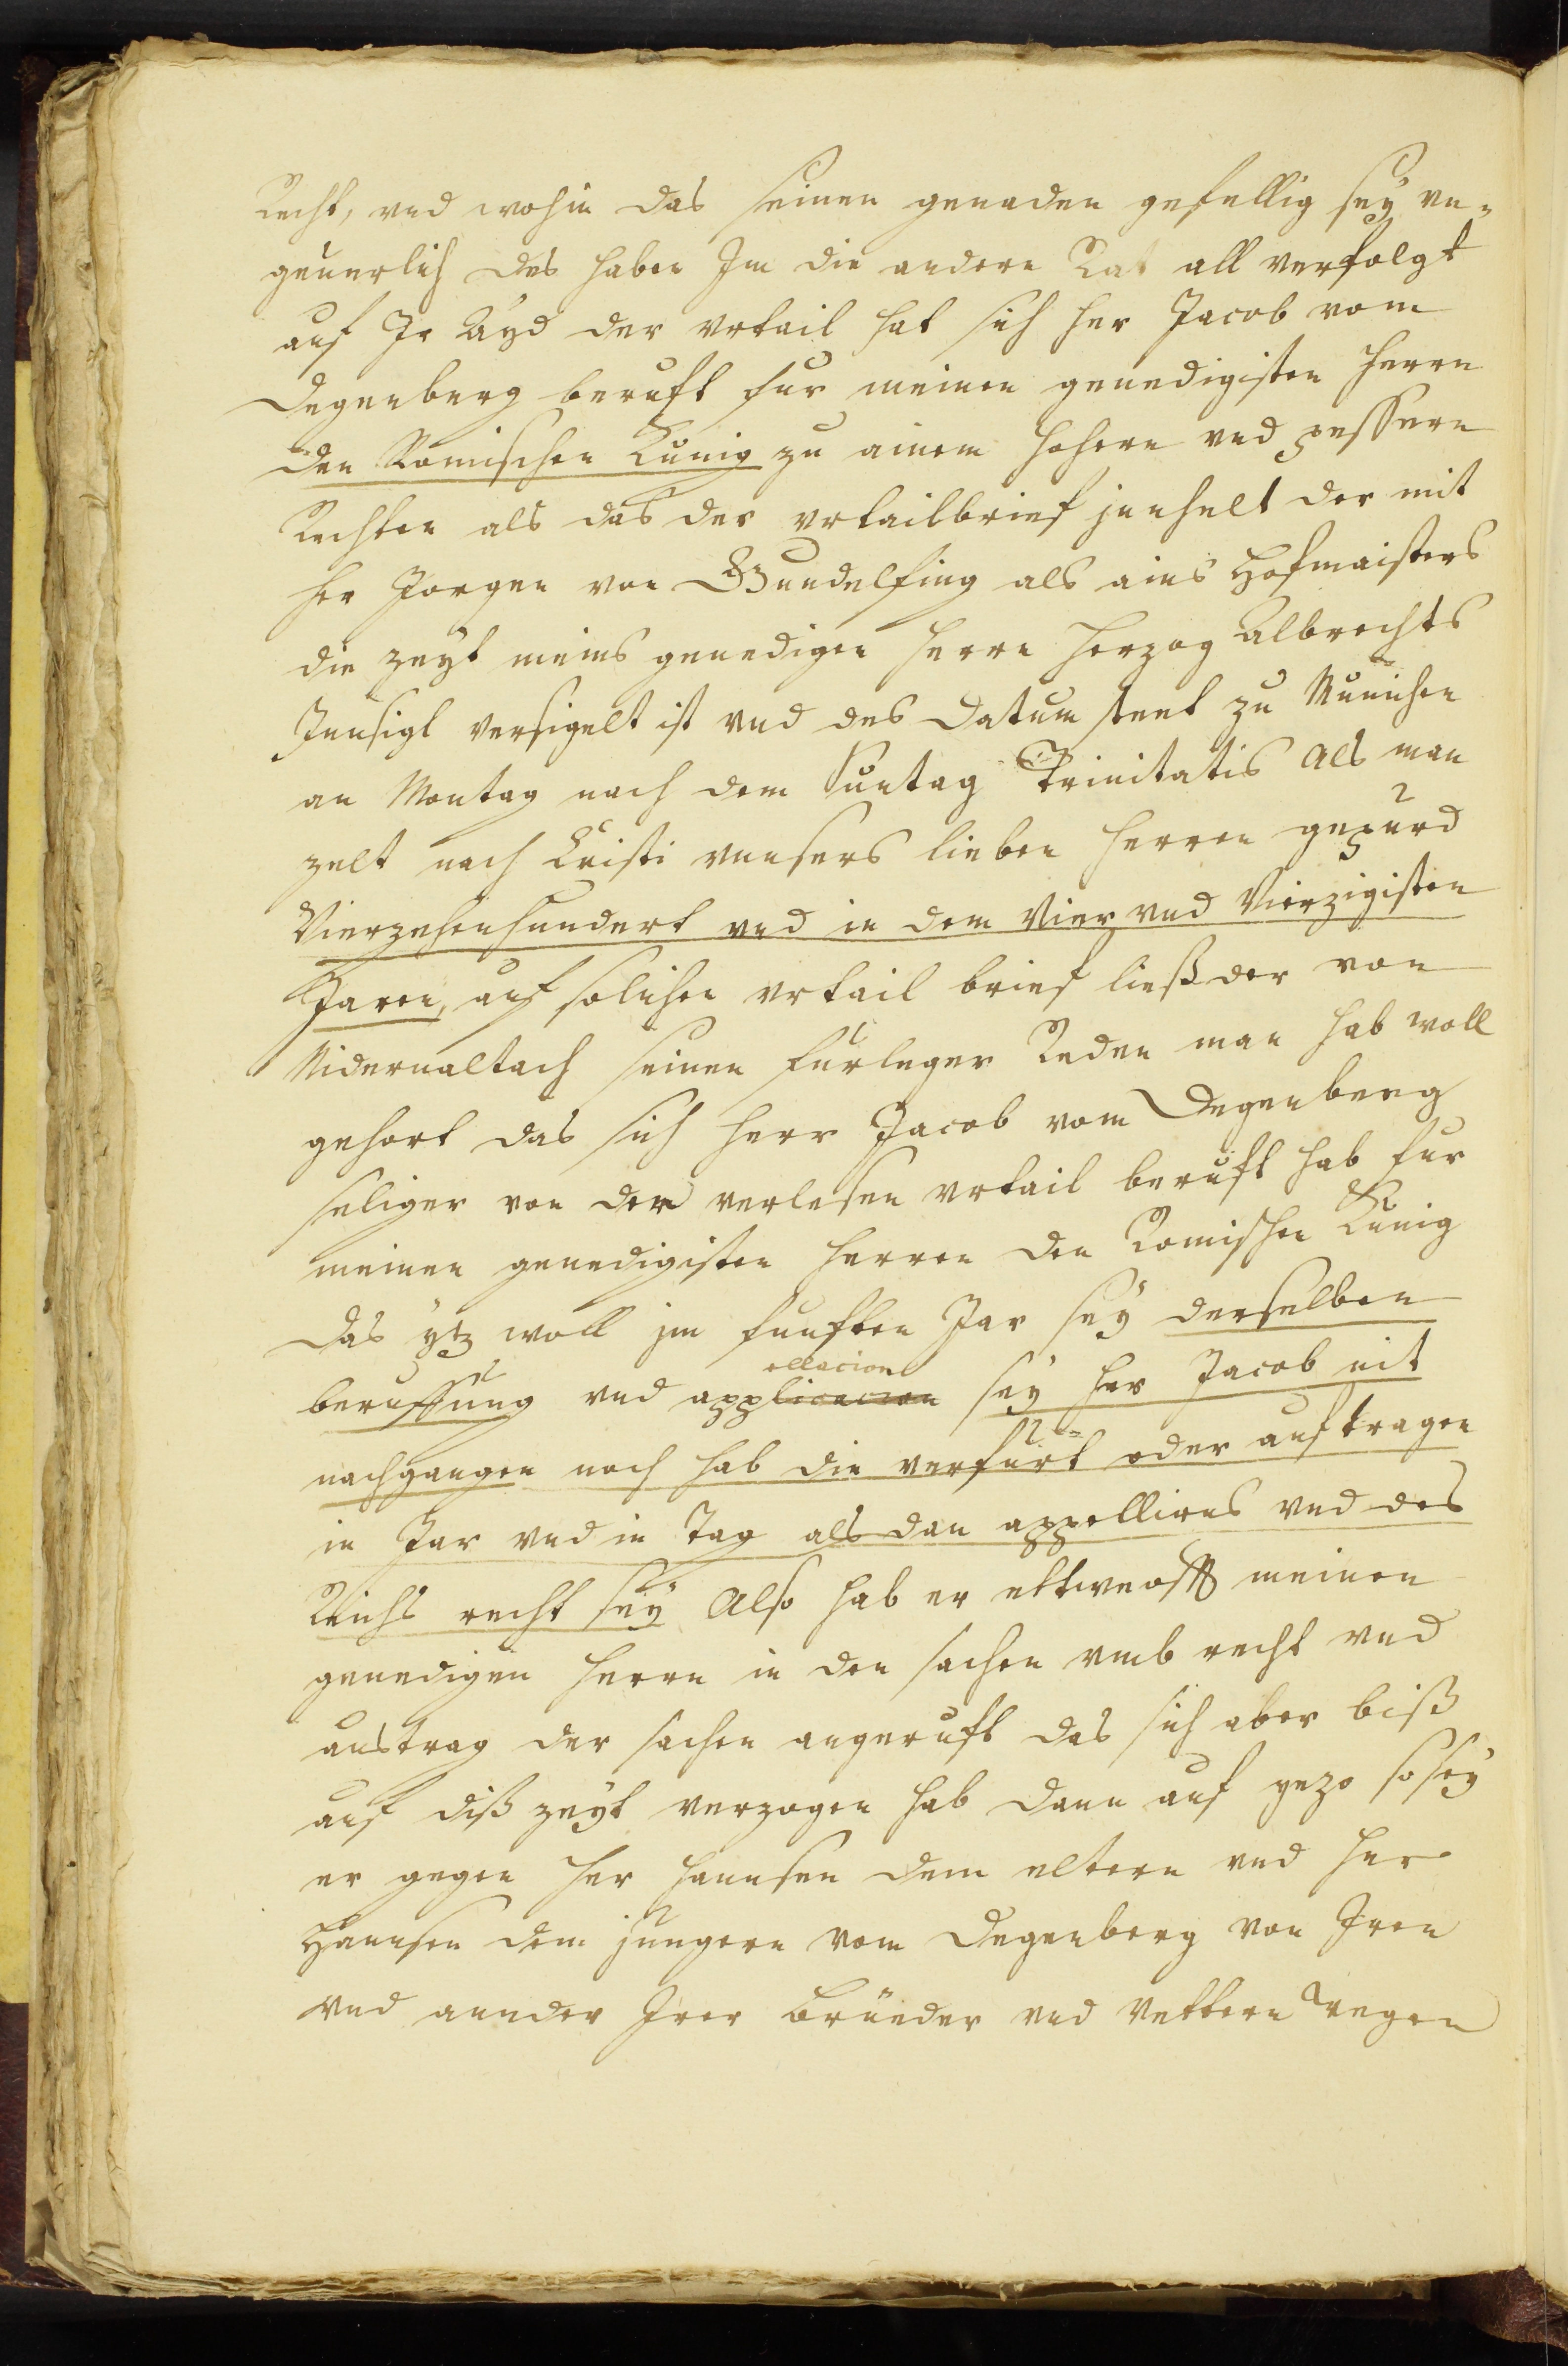 Recht, vnd wohin das seinen genaden gefellig sey vn„
geuerlich des haben Im die andern Rat all verfolgt
auf Ir Ayd der vrtail hat sich her Jacob vom
Degenberg beruft fur meinen genedigisten herrn
den Romischen Kunig zu ainem hohern vnd pessern
Rechten als das der vrtailbrief innhelt der mit
her Jorgen von Gundelfing als ains Hofmaisters
die zeyt meins genedigen herrn Herzog Albrechts
Innsigl versigelt ist vnd des Datum steet zu München
an Montag nach dem Suntag Trinitatis Als man
zelt nach Cristi vnnsers lieben herren gepurd
Vierzehenhundert vnd in dem Vier vnd Vierzigisten
Jaren, auf solichen vrtail brief ließ der von
Nidernaltach seinen furleger Reden man hab woll
gehort das sich herr Jacob vom Degenberg
seliger von der verlesen vrtail beruft hab fur
meinen genedigisten herren den Romischen Kunig
das ytz woll im funften Jar sey derselben
beruffung vnd applicacion ellacion sey her Jacob nit
nachgangen noch hab die verfürt oder auftragen
in Jar vnd in Tag als dan appellirns vnd des
Reichs recht sey Also hab er ettweofft meinen
genedigen herrn in den sachen vmb recht vnd
austrag der sachen angeruft das sich aber biß
auf diß zeyt verzogen hab dann auf yezo so sey
er gegen her Hannsen dem eltern vnd her
Hannsen dem jungern vom Degenberg von Iren
vnd annder Irer Brüeder vnd Vettern wegen